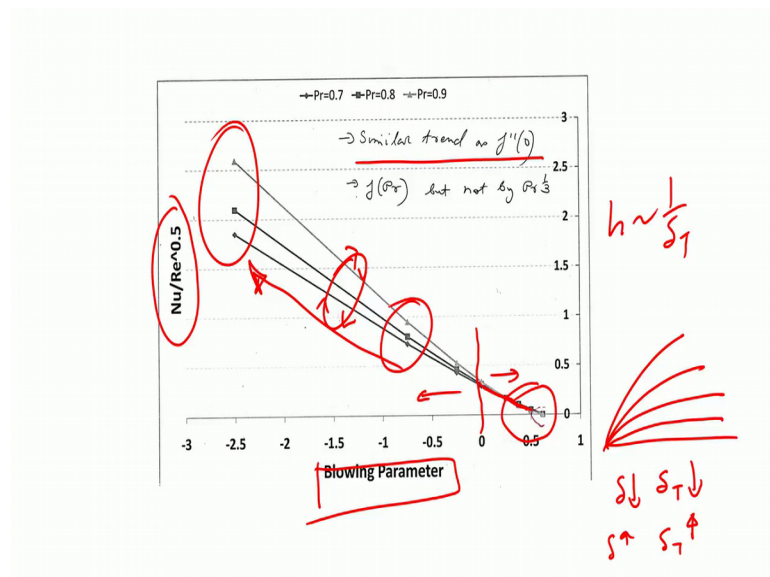 Pr=0.7 Pr=0.8 Pr=0.9
3
→ Similar trend as f''(0)
2.5
→ f(Pr) but not by Pr^1/3
2
h ~ 1/δ_T
1.5
1
0.5
0
Nu/Re^0.5
-3 -2.5 -2 -1.5 -1 -0.5 0 0.5 1
Blowing Parameter
δ↓ δ_T↓
δ↑ δ_T↑